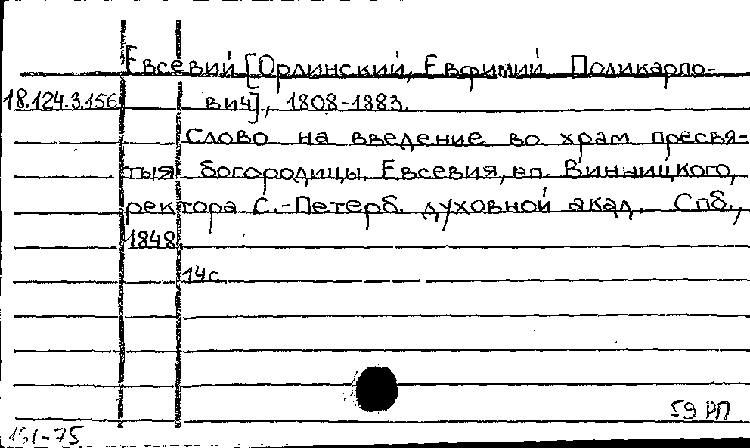 Евсевий [Орлинский, Евфимий Поликарпо-
18.124.3.156 вич], 1808-1883.
Слово на введение во храм пресвя-
тыя богородицы. Евсевия, еп. Винницкого,
ректора С.-Петерб. духовной акад. Спб.,
1848.
14с.
59 РП
151-75